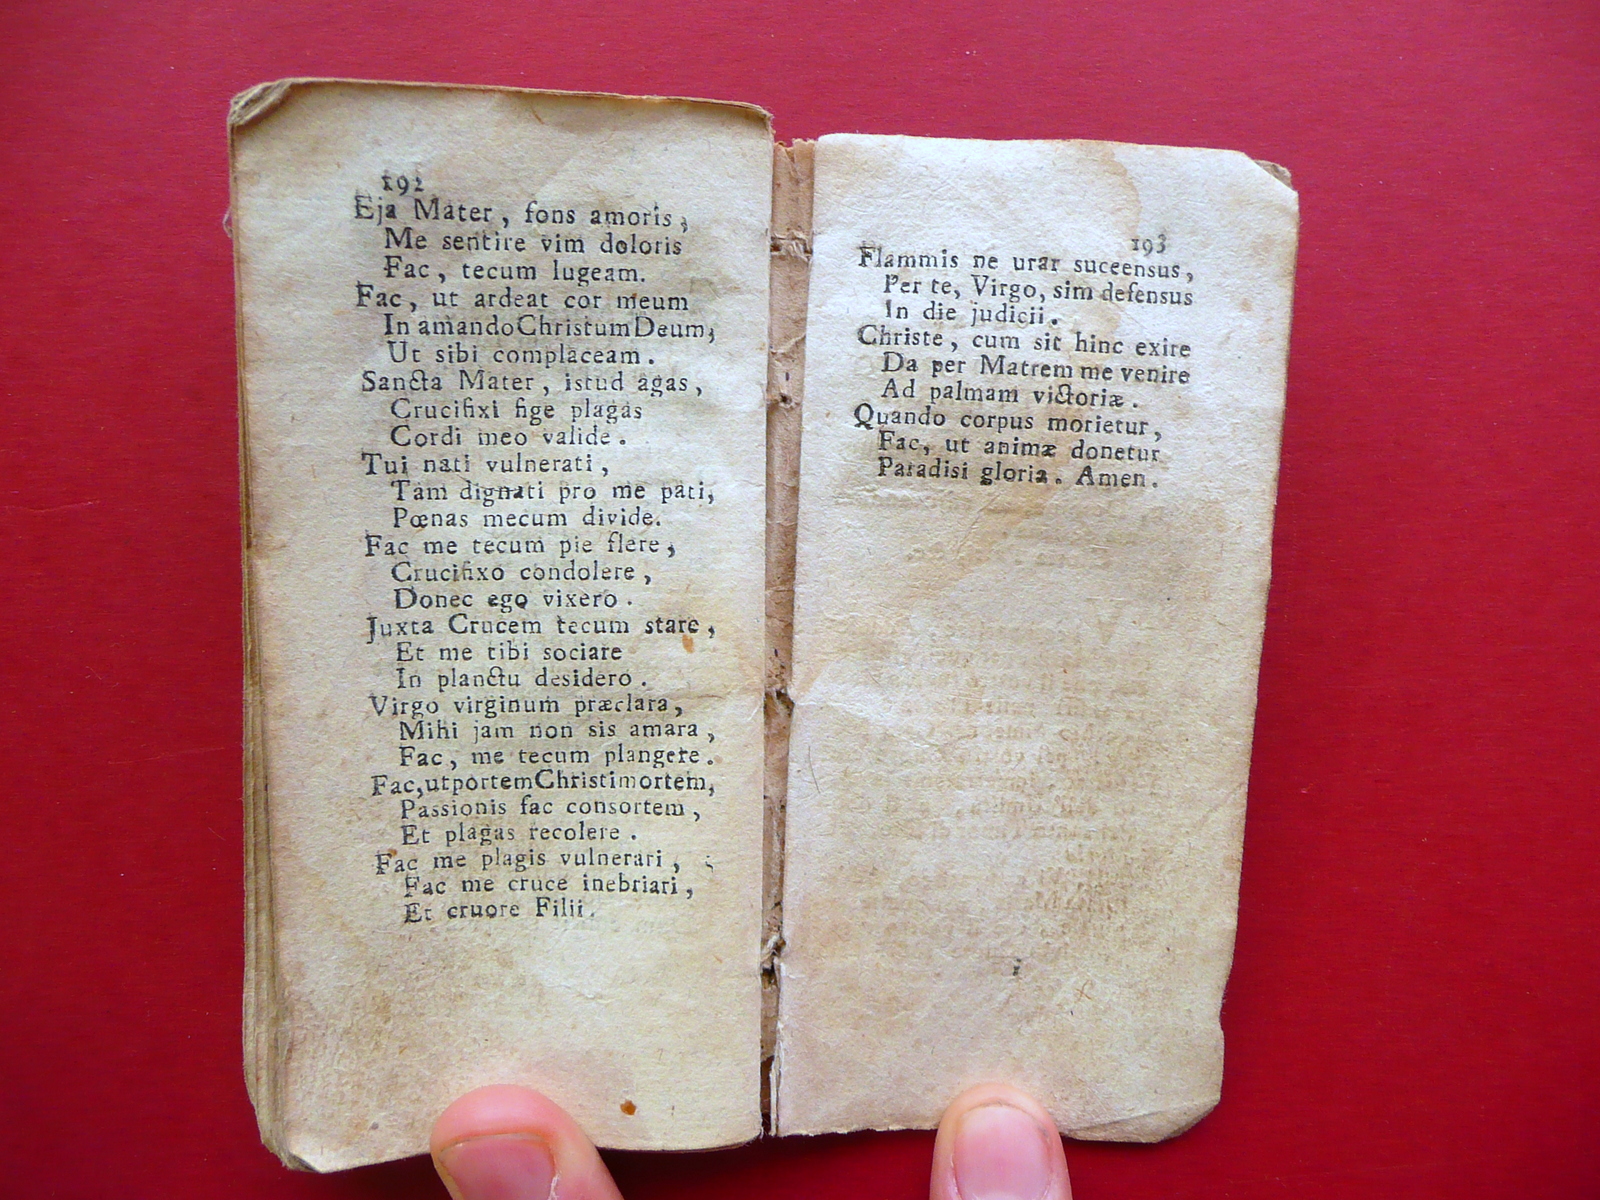 192
Eja Mater, fons amoris,
Me sentire vim doloris
Fac, tecum lugeam.
Fac, ut ardeat cor meum
In amando Christum Deum,
Ut sibi complaceam.
Sancta Mater, istud agas,
Crucifixi fige plagas
Cordi meo valide.
Tui nati vulnerati,
Tam dignati pro me pati,
Pœnas mecum divide.
Fac me tecum pie flere,
Crucifixo condolere,
Donec ego vixero.
Juxta Crucem tecum stare,
Et me tibi sociare
In planctu desidero.
Virgo virginum præclara,
Mihi jam non sis amara,
Fac, me tecum plangere.
Fac, ut portem Christi mortem,
Passionis fac consortem,
Et plagas recolere.
Fac me plagis vulnerari,
Fac me cruce inebriari,
Et cruore Filii.
193
Flammis ne urar suceensus,
Per te, Virgo, sim defensus
In die judicii.
Christe, cum sit hinc exire
Da per Matrem me venire
Ad palmam victoriæ.
Quando corpus morietur,
Fac, ut animæ donetur
Paradisi gloria. Amen.